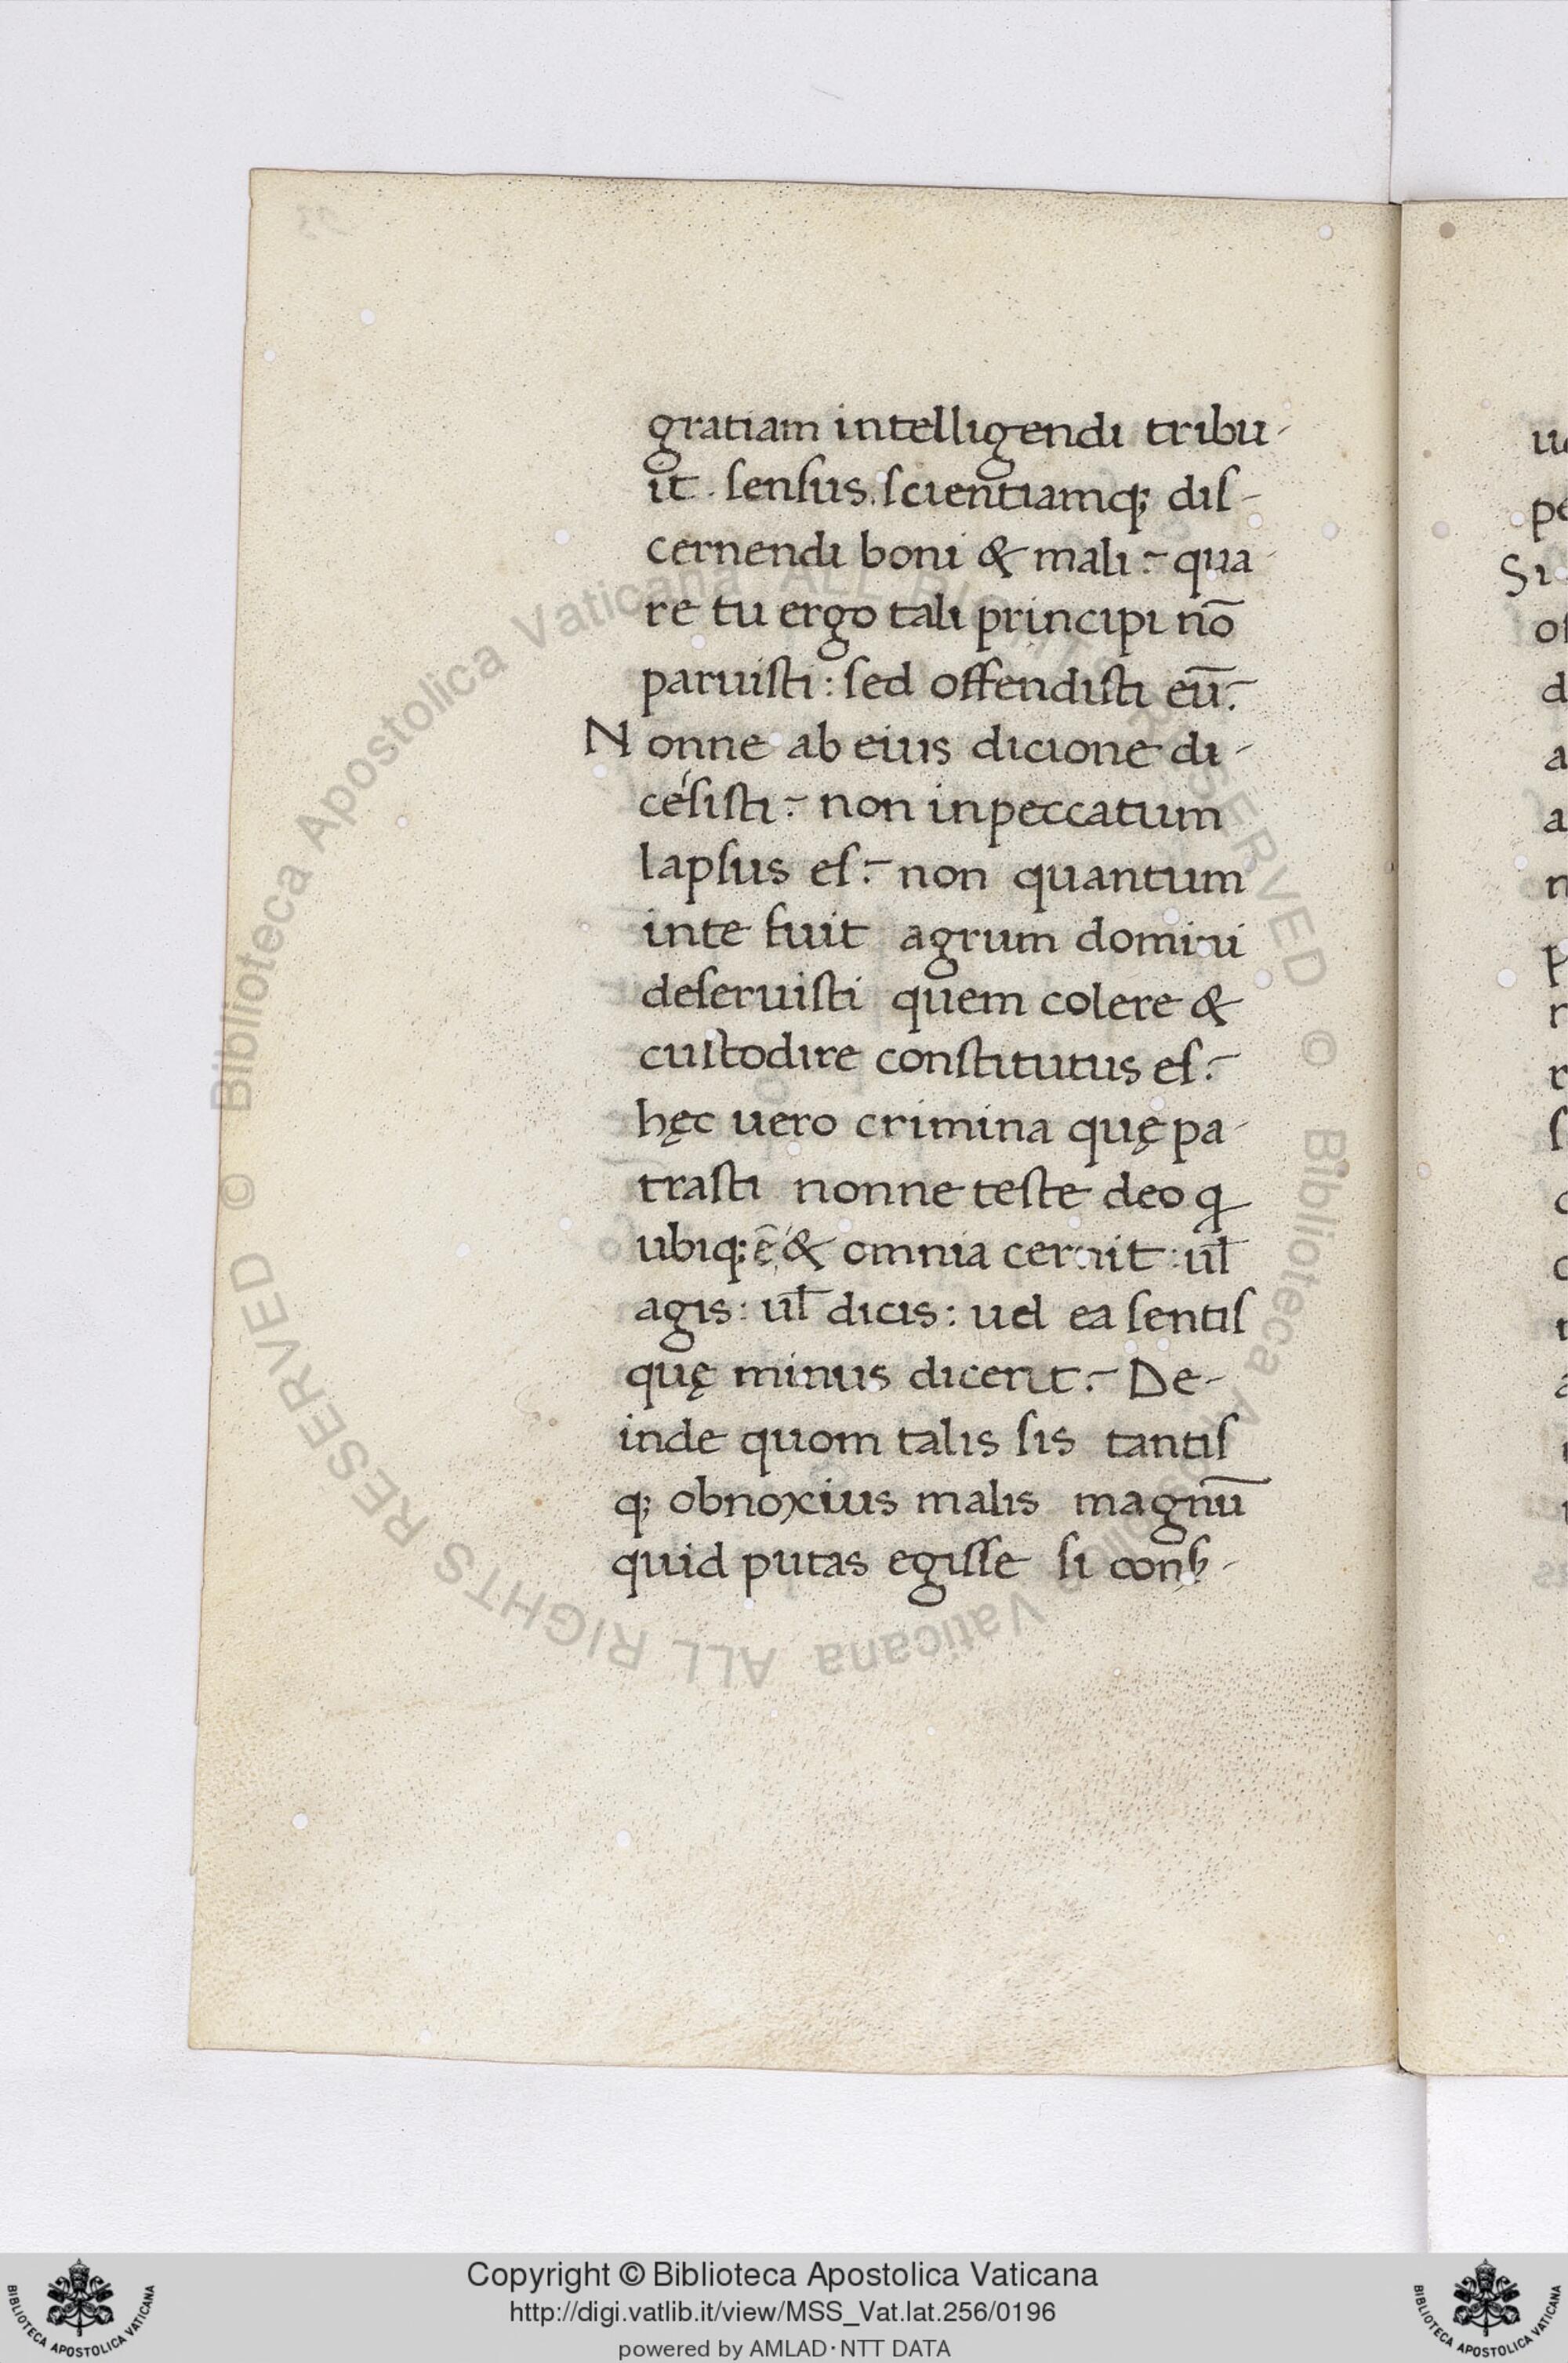 gratiam intelligendi tribu-
it. senſus. ſcientiamq; diſ-
cernendi boni & mali? qua-
re tu ergo tali principi nō
paruiſti: ſed offendiſti eū?
Nonne ab eius dicione di-
céſiſti? non inpeccatum
lapſus eſ? non quantum
inte fuit agrum domini
deſeruiſti quem colere &
cuſtodire conſtitutus eſ?
hęc uero crimina quę pa-
traſti nonne teſte deo q
ubiq; ē & omnia cernit: ul̄
agis: ul̄ dicis: uel ea ſentiſ
quę minus dicent? De-
inde quom talis ſis tantiſ
q; obnoxius malis magnū
quid putas egiſſe ſi
Biblioteca Apostolica Vaticana ALL RIGHTS RESERVED © Biblioteca Apostolica Vaticana ALL RIGHTS RESERVED ©
Copyright © Biblioteca Apostolica Vaticana
http://digi.vatlib.it/view/MSS_Vat.lat.256/0196
powered by AMLAD·NTT DATA
BIBLIOTECA APOSTOLICA VATICANA
BIBLIOTECA APOSTOLICA VATICANA